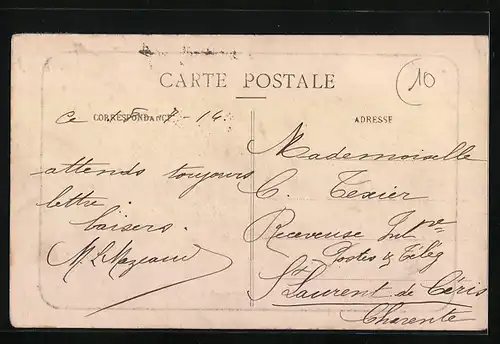 CARTE POSTALE
10
CORRESPONDANCE
ADRESSE
Ce 15-7-14.
attends toujours
lettre.
baisers.
Mademoiselle
C. Texier
Receveuse Int re
Postes & Télég
St Laurent de Céris
Charente